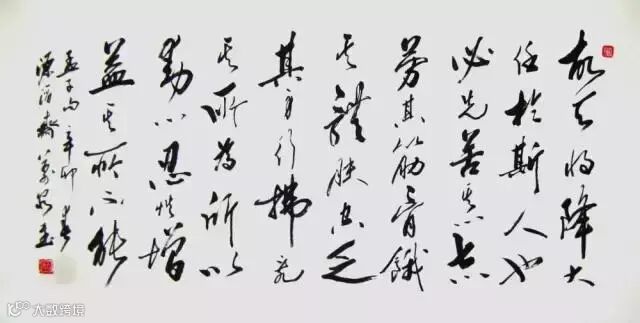 故天将降大
任於斯人也
必先苦其志
劳其筋骨饿
其體肤空乏
其身行拂乱
其所为所以
動心忍性增
益其所不能
孟子句辛卯春
大数跨境